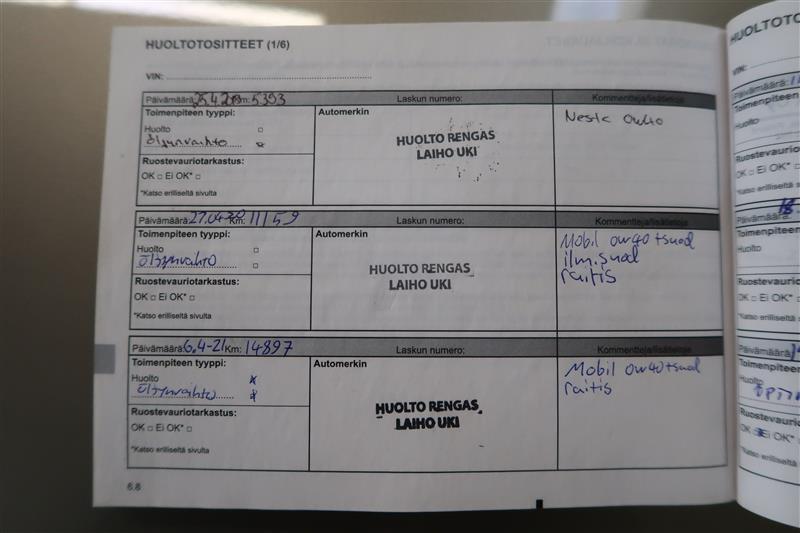 HUOLTOTOSITTEET (1/6)
VIN:
Päivämäärä: 25.4.2019 Km: 5393 Laskun numero: Kommentteja/lisätietoja
Toimenpiteen tyyppi: Automerkin Neste 0w40
Huolto
Öljynvaihto
HUOLTO RENGAS
LAIHO UKI
Ruostevauriotarkastus:
OK □ Ei OK* □
*Katso erilliseltä sivulta
Päivämäärä: 27.04.20 Km: 11159 Laskun numero: Kommentteja/lisätietoja
Toimenpiteen tyyppi: Automerkin Mobil 0w40 +suod
Huolto ilm.suod
Öljynvaihto raitis
HUOLTO RENGAS
LAIHO UKI
Ruostevauriotarkastus:
OK □ Ei OK* □
*Katso erilliseltä sivulta
Päivämäärä: 6.4-21 Km: 14897 Laskun numero: Kommentteja/lisätietoja
Toimenpiteen tyyppi: Automerkin Mobil 0w40 +suod
Huolto raitis
Öljynvaihto
HUOLTO RENGAS
LAIHO UKI
Ruostevauriotarkastus:
OK □ Ei OK* □
*Katso erilliseltä sivulta
6.6
VIN:
Päivämäärä:
Toimenpiteen
Huolto
Ruostevaurio
OK □ Ei OK*
*Katso erilliseltä
Päivämäärä: 18
Toimenpiteen
Huolto
Ruostevaurio
OK □ Ei OK*
*Katso erilliseltä
Päivämäärä:
Toimenpiteen
Huolto
Ruostevaurio
OK Ei OK*
*Katso erilliseltä